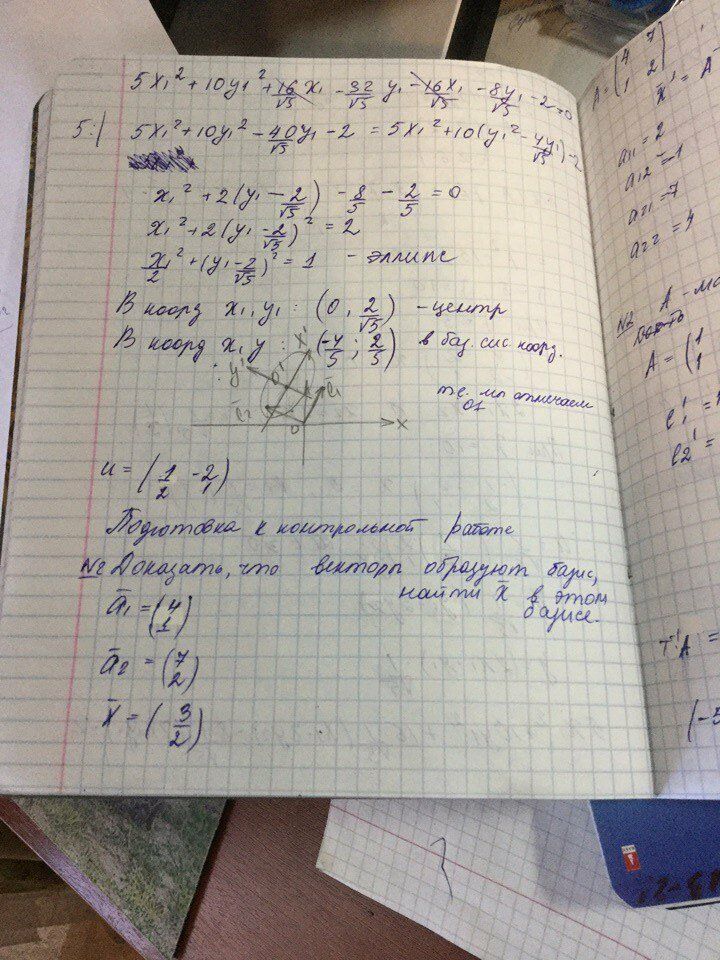 5x₁² + 10y₁² + 16/√5 x₁ - 32/√5 y₁ - 16x₁/√5 - 8y₁/√5 - 2 = 0
5:) 5x₁² + 10y₁² - 40y₁/√5 - 2 = 5x₁² + 10(y₁² - 4y₁/√5) - 2
x₁² + 2(y₁ - 2/√5) - 8/5 - 2/5 = 0
x₁² + 2(y₁ - 2/√5)² = 2
x₁²/2 + (y₁ - 2/√5)² = 1 - эллипс
В коорд x₁, y₁ : (0, 2/√5) - центр
В коорд x, y : (-4/5 ; 2/5) в баз. сис коорд.
x'
y' O' e₁
e₂
O x
т.е. мы отмечаем
O1
u = (1 -2
2 1)
Подготовка к контрольной работе
№2 Доказать, что векторы образуют базис,
найти x̄ в этом
базисе.
ā₁ = (4
1)
ā₂ = (7
2)
x̄ = (3
2)
A = (4 7
1 2)
x̄' = A⁻
a11 = 2
a12 = -1
a21 = 7
a22 = 4
№2 A - ма
A = (1
1
e₁' =
e₂' =
T⁻¹A =
(-5